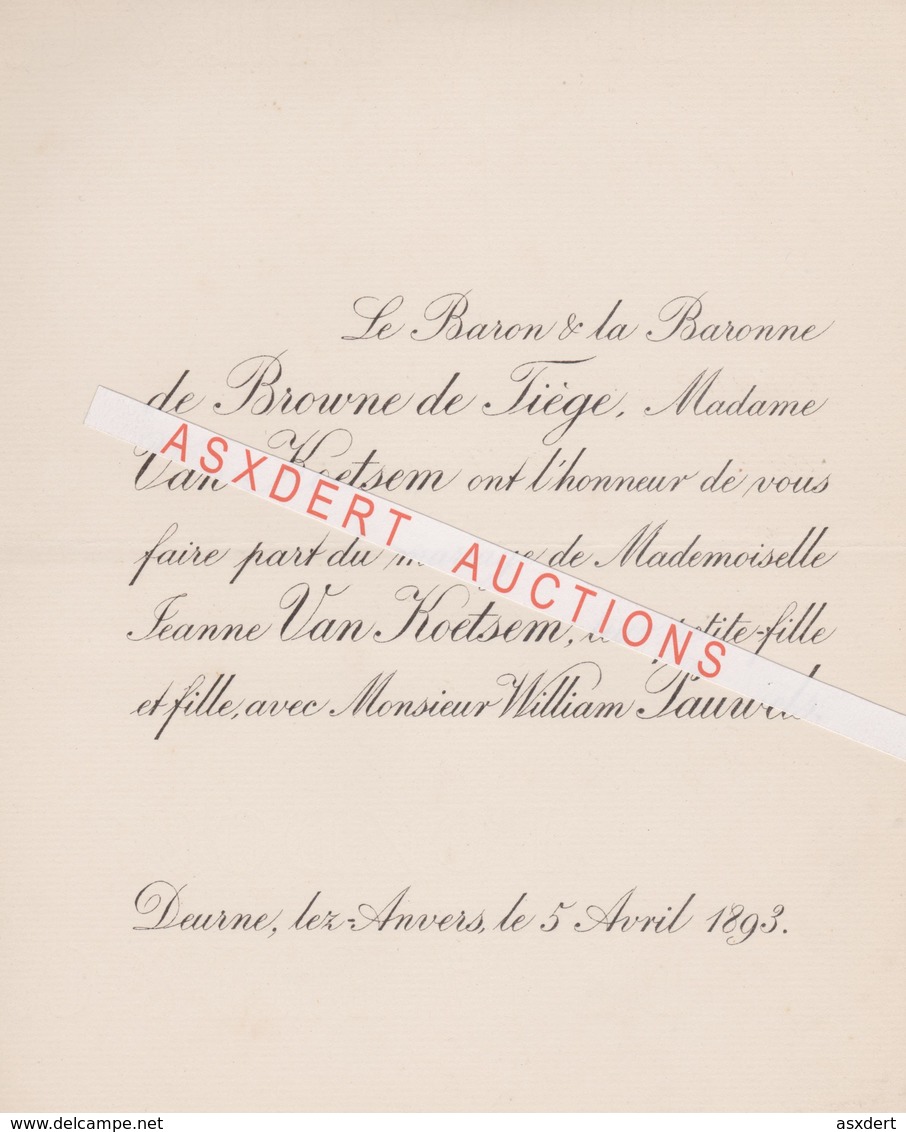 Le Baron & la Baronne
de Browne de Tiège, Madame
Van Koetsem ont l'honneur de vous
faire part du de Mademoiselle
Jeanne Van Koetsem, petite-fille
et fille, avec Monsieur William
Deurne, lez-Anvers, le 5 Avril 1893.
ASXDERT AUCTIONS
delcampe.net
asxdert